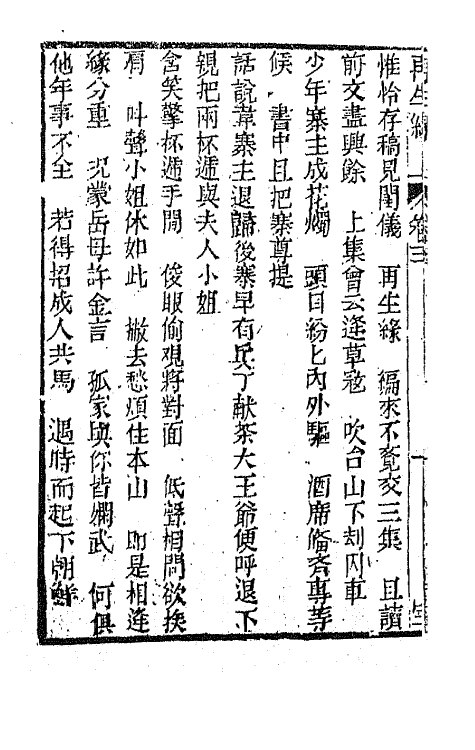 再生緣 卷三
惟怜存稿見閨儀　再生緣　編來不覺交三集　且讀
前文盡興餘　上集會云逢草寇　吹台山下刼囚車
少年寨主成花燭　頭目紛匕內外驅　酒席俻齐專等
候　書中且把寨尊提
話說韋寨主退歸後寨早有兵丁献茶大王爺便呼退下
親把兩杯遞與夫人小姐
含笑擎杯遞手間　俊眼偷覌將對面　低聲相問欲挨
肩　叫聲小姐休如此　撇去愁煩住本山　卽是相逢
緣分重　况蒙岳母許金言　孤家與你皆嫻武　何俱
他年事不全　若得招成人共馬　遇時而起下朝鮮